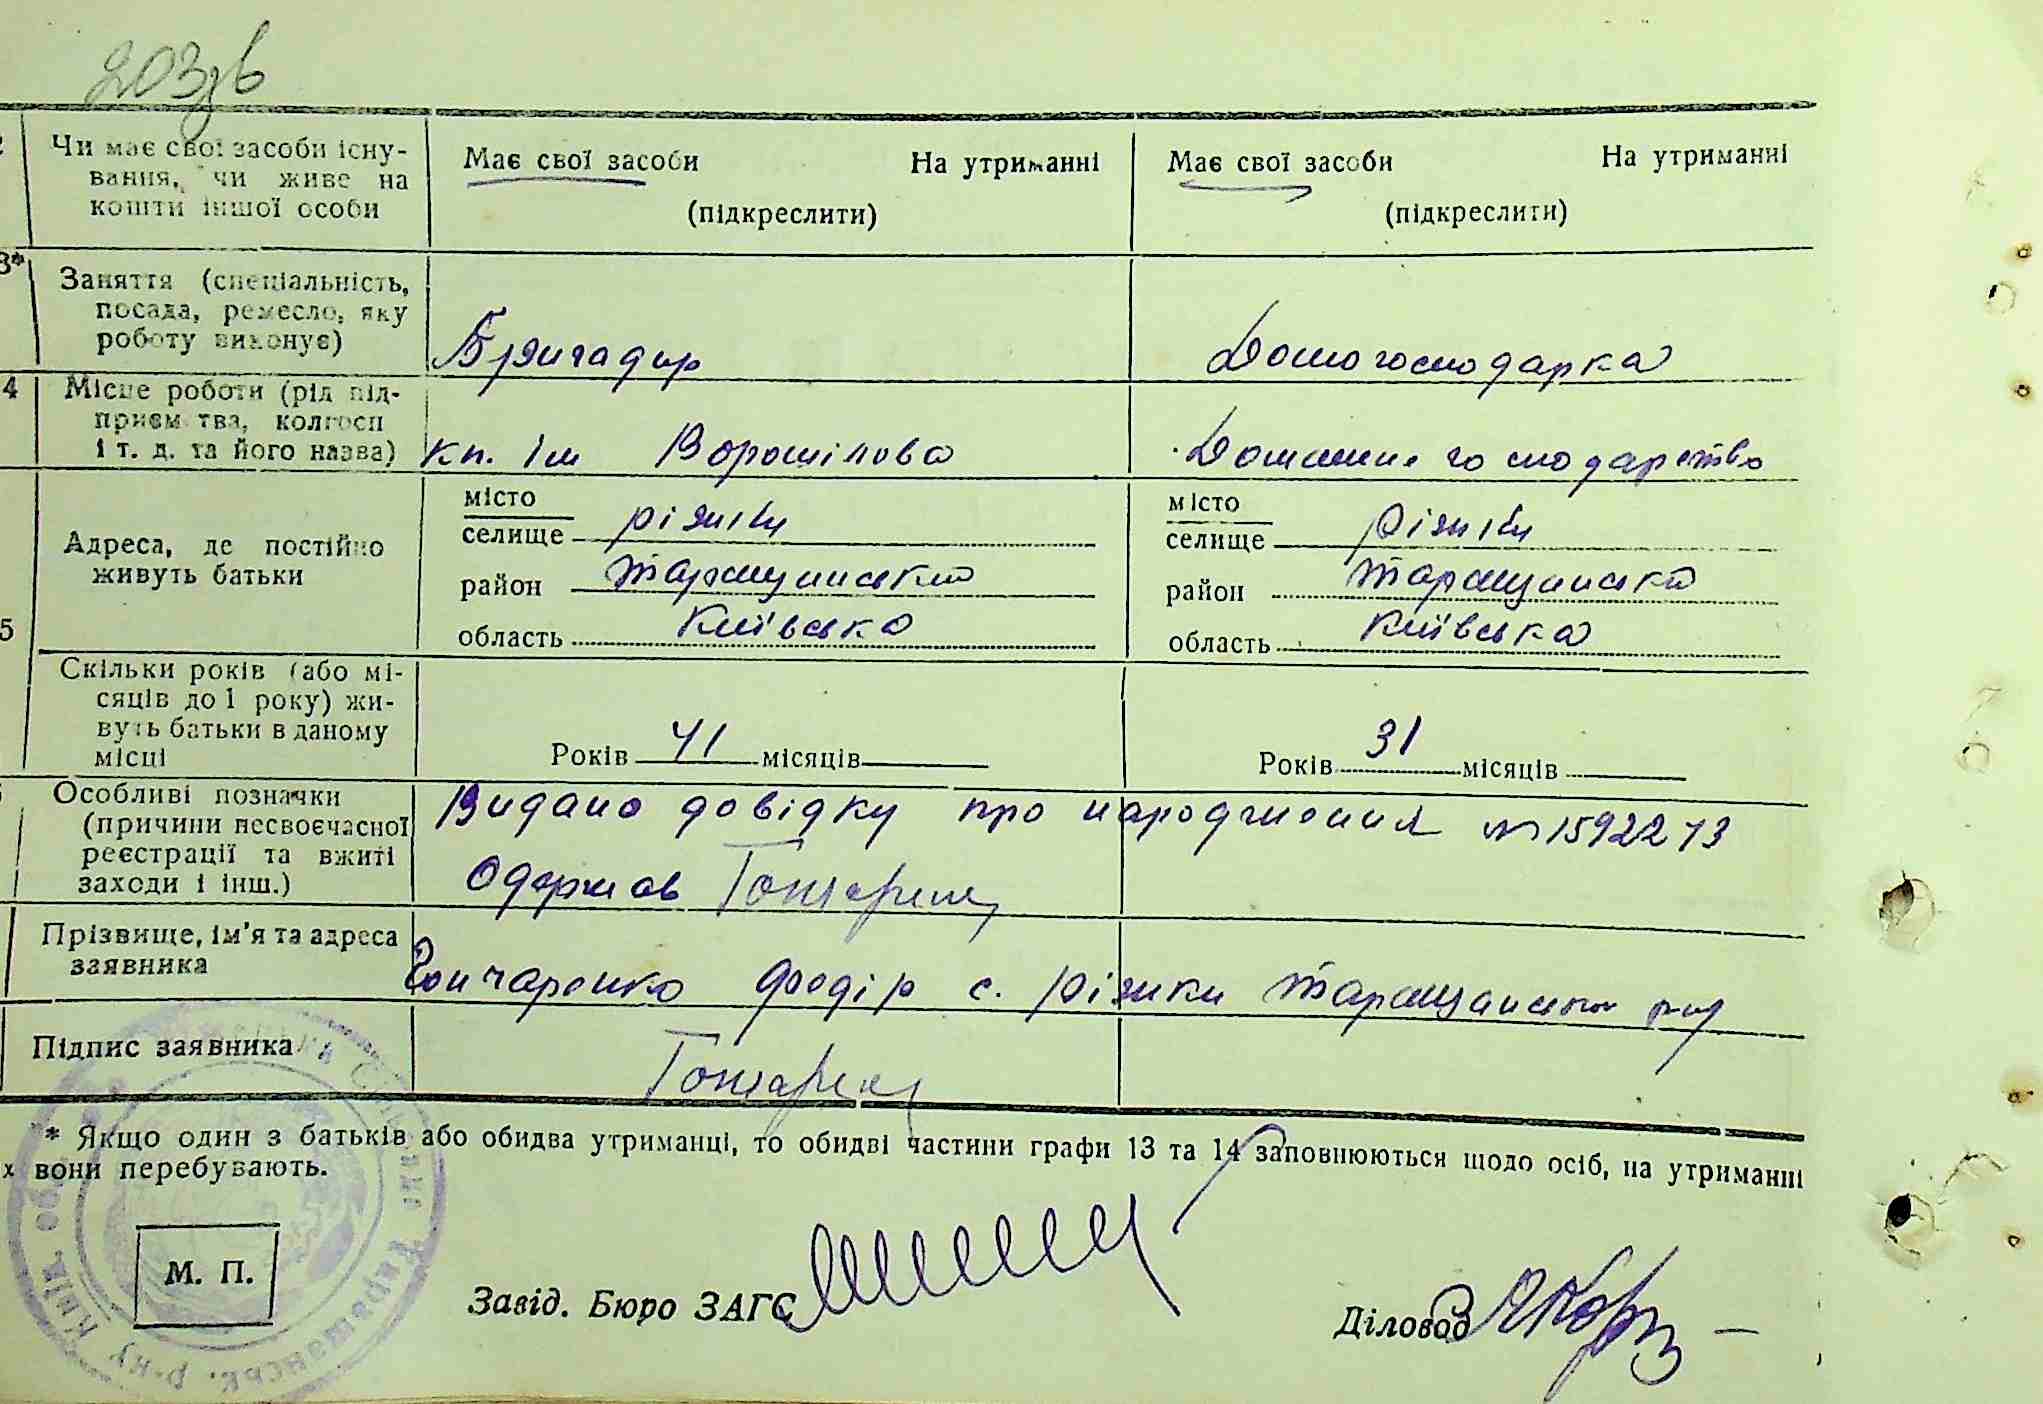 203зв
Чи має свої засоби існу-
вання, чи живе на
кошти іншої особи
Має свої засоби На утриманні
(підкреслити)
Має свої засоби На утриманні
(підкреслити)
3*
Заняття (спеціальність,
посада, ремесло, яку
роботу виконує)
Бригадир
Домогосподарка
4
Місце роботи (рід під-
приєм тва, колгосп
і т. д. та його назва)
кп. Ім Ворошілова
Домашне господарство
5
Адреса, де постійно
живуть батьки
місто
селище Ріжки
район Таращанський
область Київська
місто
селище Ріжки
район Таращанський
область Київська
Скільки років (або мі-
сяців до 1 року) жи-
вуть батьки в даному
місці
Років 41 місяців
Років 31 місяців
Особливі позначки
(причини несвоєчасної
реєстрації та вжиті
заходи і інш.)
Видано довідку про народження № 1592273
Одержав Гончаренк
Прізвище, ім'я та адреса
заявника
Гончаренко Федір с. Ріжки Таращанськог р-ну
Підпис заявника
Гончаренк
* Якщо один з батьків або обидва утриманці, то обидві частини графи 13 та 14 заповнюються щодо осіб, на утриманні
х вони перебувають.
М. П.
Завід. Бюро ЗАГС
Діловод